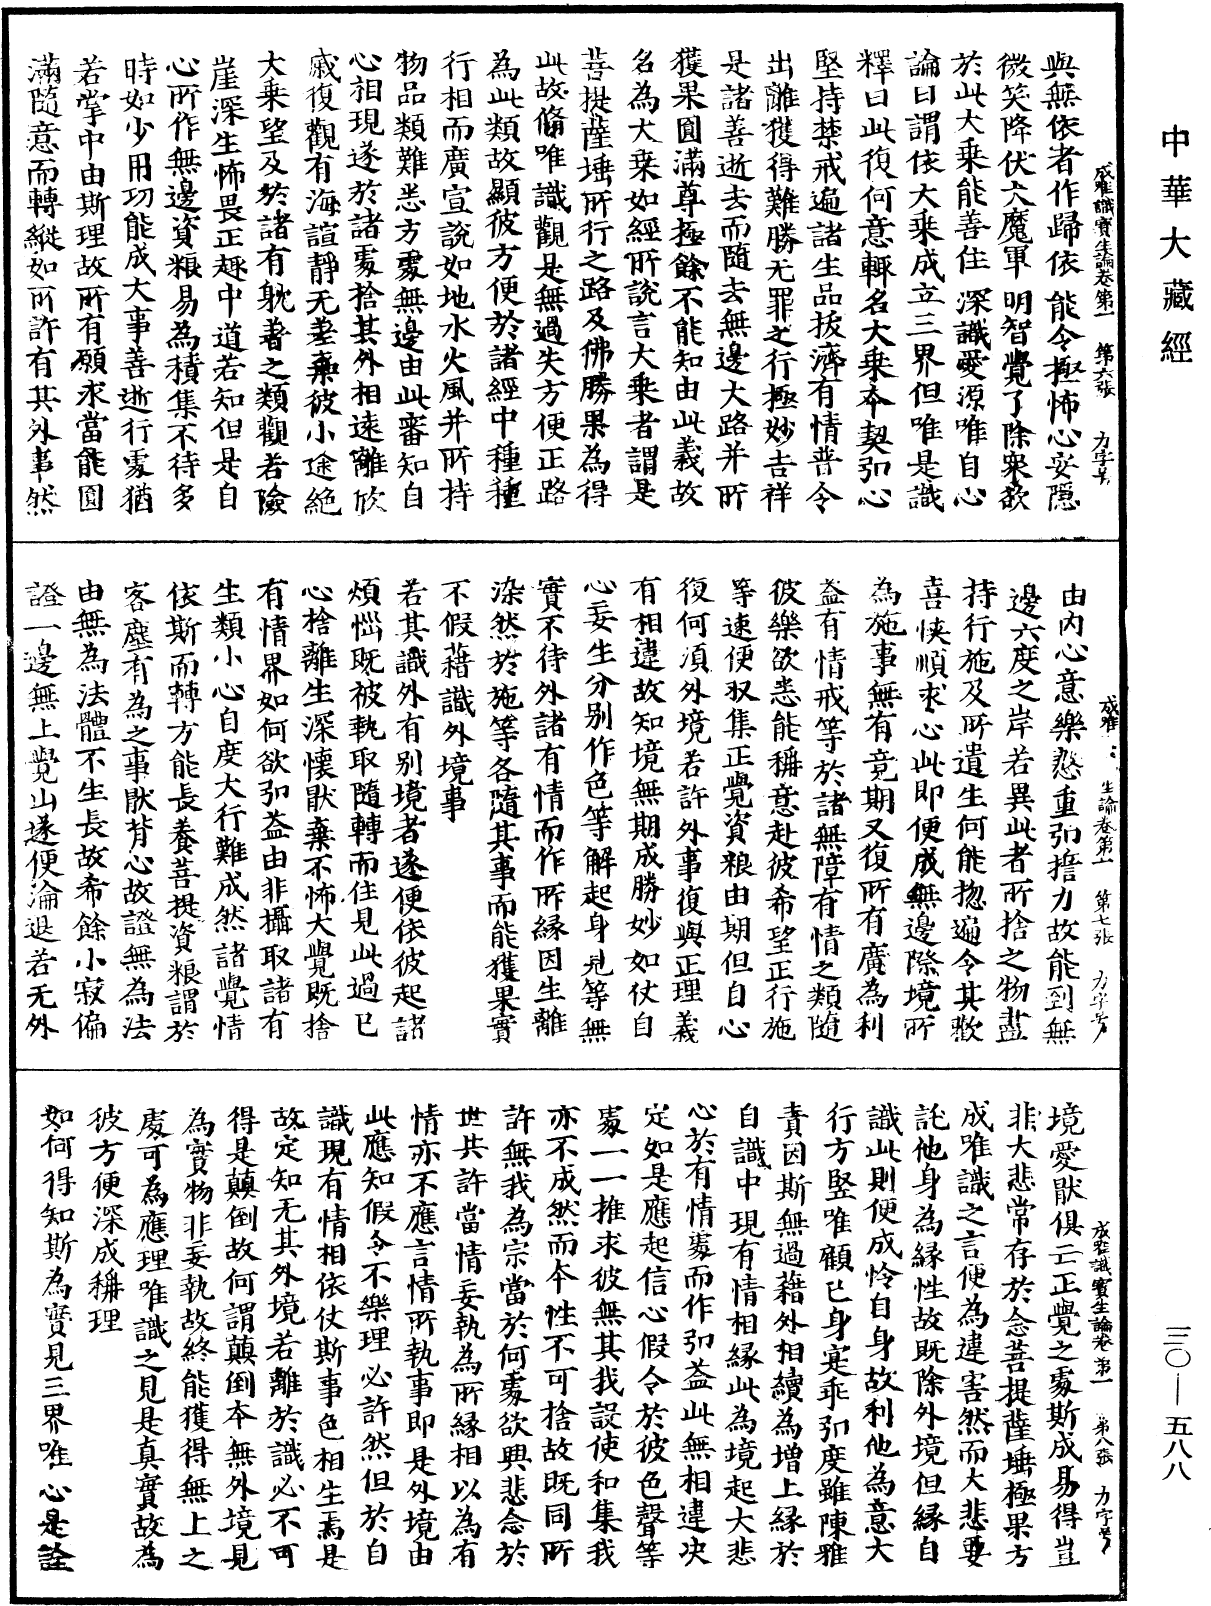 中華大藏經
三〇—五八八
成唯識寶生論卷第一　第六張　力字号
與無依者作歸依　能令極怖心安隱
微笑降伏大魔軍　明智覺了除衆欲
於此大乘能善住　深識愛源唯自心
論曰謂依大乘成立三界但唯是識
釋曰此復何意輒名大乘本契弘心
堅持禁戒遍諸生品拔濟有情普令
出離獲得難勝无罪之行極妙吉祥
是諸善逝去而隨去無邊大路并所
獲果圓滿尊極餘不能知由此義故
名為大乘如經所說言大乘者謂是
菩提薩埵所行之路及佛勝果為得
此故脩唯識觀是無過失方便正路
為此類故顯彼方便於諸經中種種
行相而廣宣說如地水火風并所持
物品類難悉方處無邊由此審知自
心相現遂於諸處捨其外相遠離欣
慼復觀有海諠靜无差棄彼小途絕
大乘望及於諸有躭著之類觀若險
崖深生怖畏正趣中道若知但是自
心所作無邊資粮易為積集不待多
時如少用功能成大事善逝行處猶
若掌中由斯理故所有願求當能圓
滿隨意而轉縱如所許有其外事然
第七張　力字号
由內心意樂慇重弘擔力故能到無
邊六度之岸若異此者所捨之物盡
持行施及所遺生何能揔遍令其歡
喜悏順求心此即便成無邊際境所
為施事無有竟期又復所有廣為利
益有情戒等於諸無障有情之類隨
彼樂欲悉能稱意赴彼希望正行施
等速便収集正覺資粮由期但自心
復何須外境若許外事復與正理義
有相違故知境無期成勝妙如仗自
心妄生分別作色等解起身見等無
實不待外諸有情而作所緣因生離
染然於施等各隨其事而能獲果實
不假藉識外境事
若其識外有別境者遂便依彼起諸
煩惱既被執取隨轉而住見此過已
心捨離生深懷猒棄不怖大覺既捨
有情界如何欲弘益由非攝取諸有
生類小心自度大行難成然諸覺情
依斯而轉方能長養菩提資粮謂於
客塵有為之事猒背心故證無為法
由無為法體不生長故希餘小寂偏
證一邊無上覺山遂便淪退若无外
成唯識寶生論卷第一　第八張　力字号
境愛猒俱亡正覺之處斯成易得豈
非大悲常存於念菩提薩埵極果方
成唯識之言便為違害然而大悲要
託他身為緣性故既除外境但緣自
識此則便成怜自身故利他為意大
行方堅唯顧已身寔乖弘度雖陳雅
責因斯無過藉外相續為增上緣於
自識中現有情相緣此為境起大悲
心於有情處而作弘益此無相違決
定如是應起信心假令於彼色聲等
處一一推求彼無其我設使和集我
亦不成然而本性不可捨故既同所
許無我為宗當於何處欲興悲念於
世共許當情妄執為所緣相以為有
情亦不應言情所執事即是外境由
此應知假令不樂理必許然但於自
識現有情相依仗斯事色相生焉是
故定知无其外境若離於識必不可
得是顛倒故何謂顛倒本無外境見
為實物非妄執故終能獲得無上之
處可為應理唯識之見是真實故為
彼方便深成稱理
如何得知斯為實見三界唯心是詮